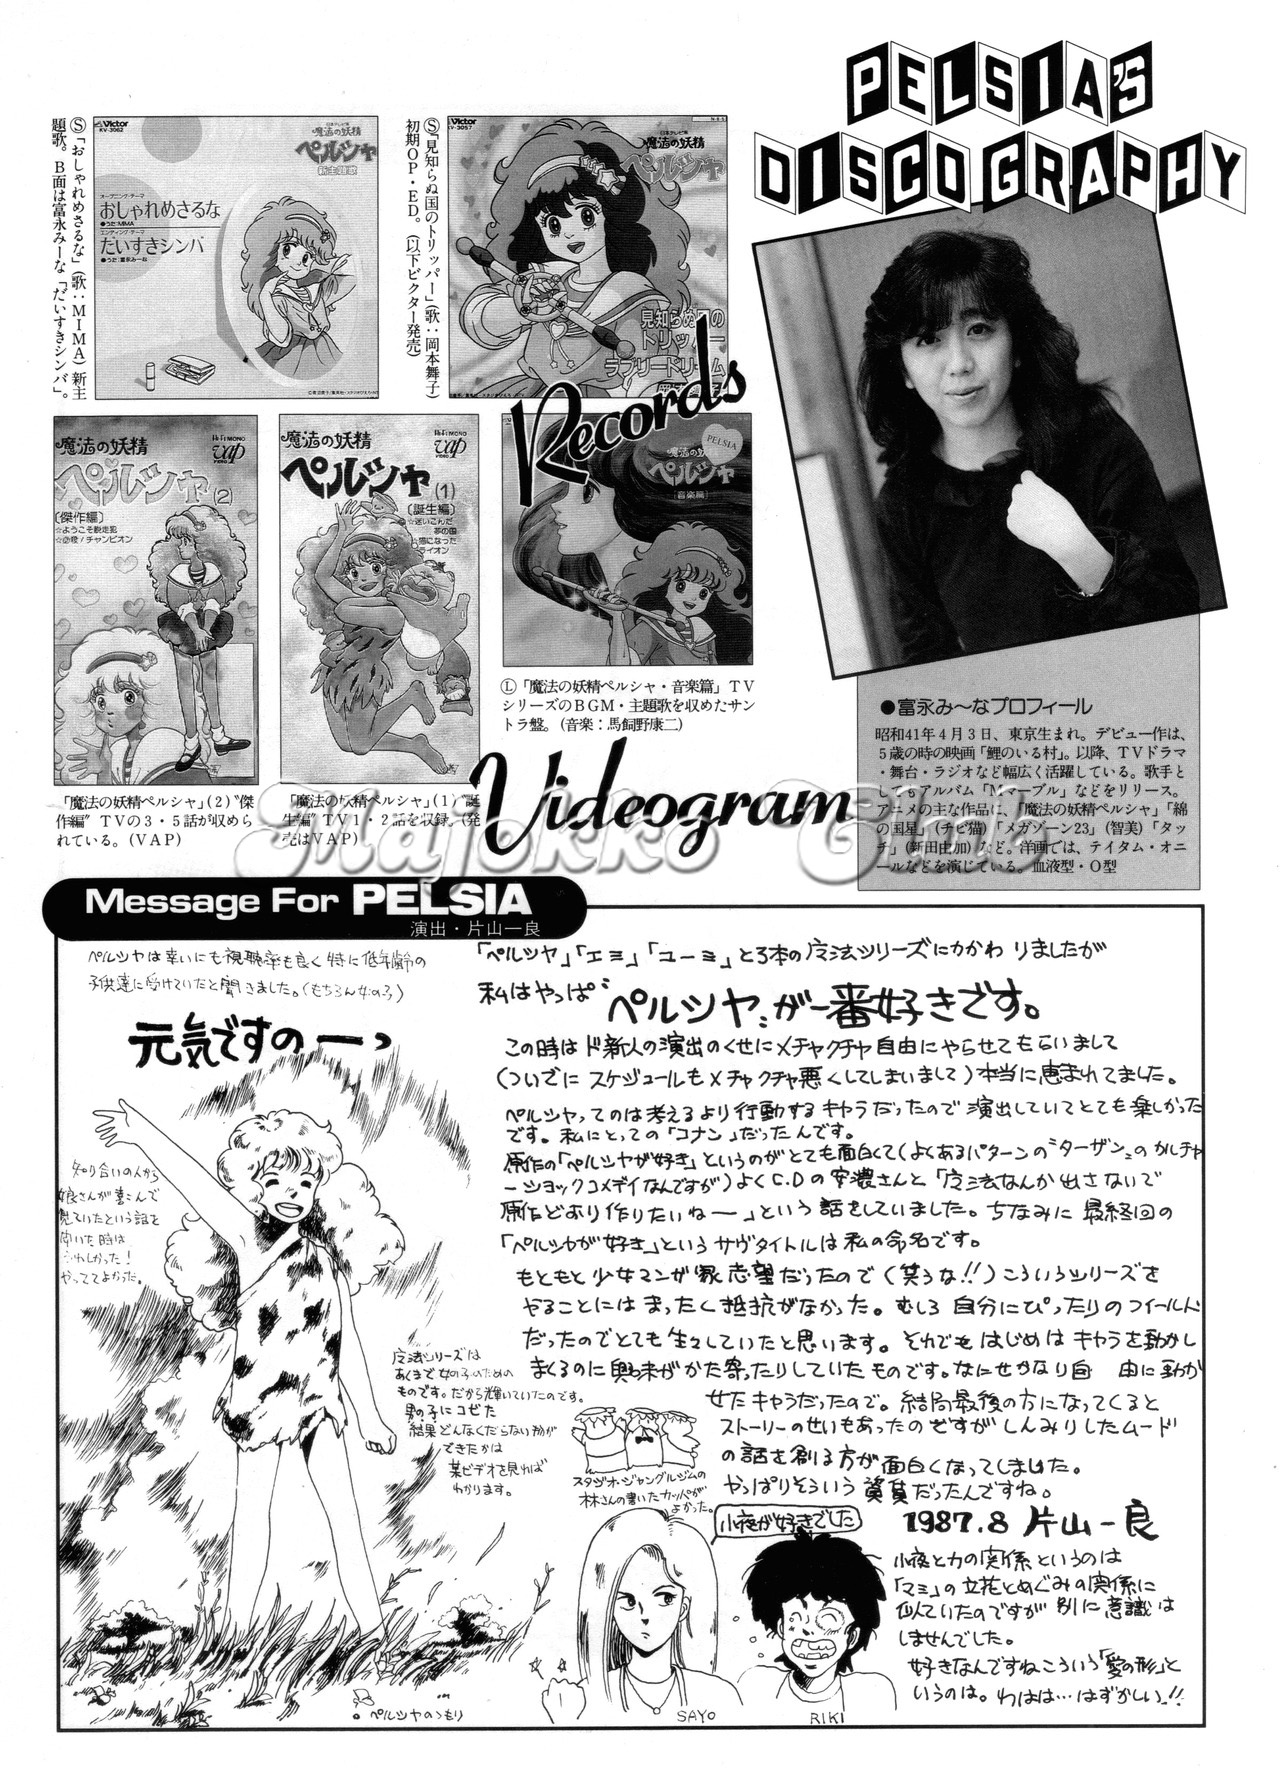 PELSIA'S
DISCOGRAPHY
Ⓢ「おしゃれめさるな」(歌:MIMA)新主
題歌。B面は富永みーな「だいすきシンバ」。
Victor
KV-3062
日本テレビ系
魔法の妖精
ペルシャ
新主題歌
オープニング・テーマ
おしゃれめさるな
●うた:MIMA
エンディング・テーマ
だいすきシンバ
●うた:富永みーな
Ⓢ「見知らぬ国のトリッパー」(歌:岡本舞子)
初期OP・ED。(以下ビクター発売)
Victor
KV-3057
日本テレビ系
魔法の妖精
ペルシャ
見知らぬ国の
トリッパー
ラブリードリーム
Records
魔法の妖精
ペルシャ(2)
Hi-Fi MONO
vap
VIDEO
〔傑作編〕
☆ようこそ脱走犯
☆㊙殺!チャンピオン
魔法の妖精
ペルシャ(1)
Hi-Fi MONO
vap
VIDEO
〔誕生編〕
☆迷いこんだ
夢の国
☆猫になった
ライオン
PELSIA
魔法の妖精
ペルシャ
〔音楽篇〕
Ⓛ「魔法の妖精ペルシャ・音楽篇」TV
シリーズのBGM・主題歌を収めたサン
トラ盤。(音楽:馬飼野康二)
Videogram
「魔法の妖精ペルシャ」(2)“傑
作編”TVの3・5話が収めら
れている。(VAP)
「魔法の妖精ペルシャ」(1)“誕
生編”TV1・2話を収録。(発
売はVAP)
●富永み〜なプロフィール
昭和41年4月3日、東京生まれ。デビュー作は、
5歳の時の映画「鯉のいる村」。以降、TVドラマ
・舞台・ラジオなど幅広く活躍している。歌手と
してもアルバム「Mマーブル」などをリリース。
アニメの主な作品に、「魔法の妖精ペルシャ」「綿
の国星」(チビ猫)「メガゾーン23」(智美)「タッ
チ」(新田由加)など。洋画では、テイタム・オニ
ールなどを演じている。血液型・O型
Majokko Club
Message For PELSIA
演出・片山一良
ペルシャは幸いにも視聴率も良く特に低年齢の
子供達に受けていたと聞きました。(もちろん女の子)
元気ですのーっ
知り合いの人から
娘さんが喜こんで
見ていたという話を
聞いた時は
うれしかった!
やっててよかった。
「ペルシャ」「エミ」「ユーミ」と3本の魔法シリーズにかかわりましたが
私はやっぱ“ペルシャ”が一番好きです。
この時はド新人の演出のくせにメチャクチャ自由にやらせてもらいまして
(ついでにスケジュールもメチャクチャ悪くしてしまいまして)本当に恵まれてました。
ペルシャってのは考えるより行動するキャラだったので演出していてとても楽しかった
です。私にとっての「コナン」だったんです。
原作の「ペルシャが好き」というのがとても面白くて(よくあるパターンの“ターザン”のカルチャ
ーショックコメディなんですが)よくC.Dの安濃さんと「魔法なんか出さないで
原作どおり作りたいねー」という話をしていました。ちなみに最終回の
「ペルシャが好き」というサヴタイトルは私の命名です。
もともと少女マンガ家志望だったので(笑うな!!)こういうシリーズを
やることにはまったく抵抗がなかった。むしろ自分にぴったりのフィールド
だったのでとても生々していたと思います。それでもはじめはキャラを動かし
まくるのに興味がかた寄ったりしていたものです。なにせかなり自由に動か
せたキャラだったので。結局最後の方になってくると
ストーリーのせいもあったのですがしんみりしたムード
の話を創る方が面白くなってしまいました。
やっぱりそういう資質だったんですね。
1987.8 片山一良
魔法シリーズは
あくまで女の子のための
ものです。だから輝いていたのです。
男の子にコビた
結果どんなくだらない物が
できたかは
某ビデオを見れば
わかります。
スタジオ・ジャングルジムの
林さんの書いたカッパが
よかった。
小夜が好きでした
小夜と力の関係というのは
「マミ」の立花とめぐみの関係に
似ていたのですが別に意識は
しませんでした。
好きなんですねこういう「愛の形」と
いうのは。わはは…はずかしい!!
ペルシャのつもり
SAYO
RIKI